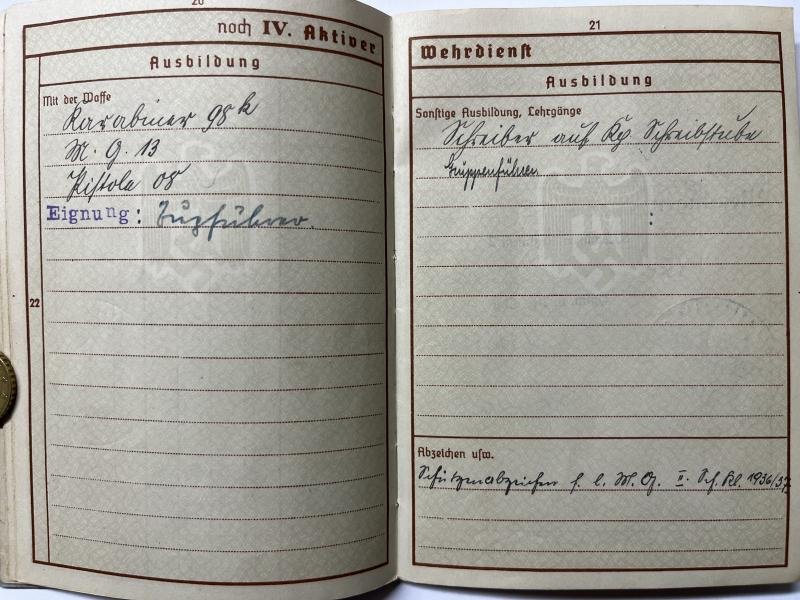 20
noch IV. Aktiver
Ausbildung
Mit der Waffe
Karabiner 98k
M. G. 13
Pistole 08
Eignung: Zugführer.
22
21
Wehrdienst
Ausbildung
Sonstige Ausbildung, Lehrgänge
Schreiber auf Kp. Schreibstube
Gruppenführer
:
Abzeichen usw.
Schützenabzeichen f. l. M. G. II. Sch. Kl. 1936/37